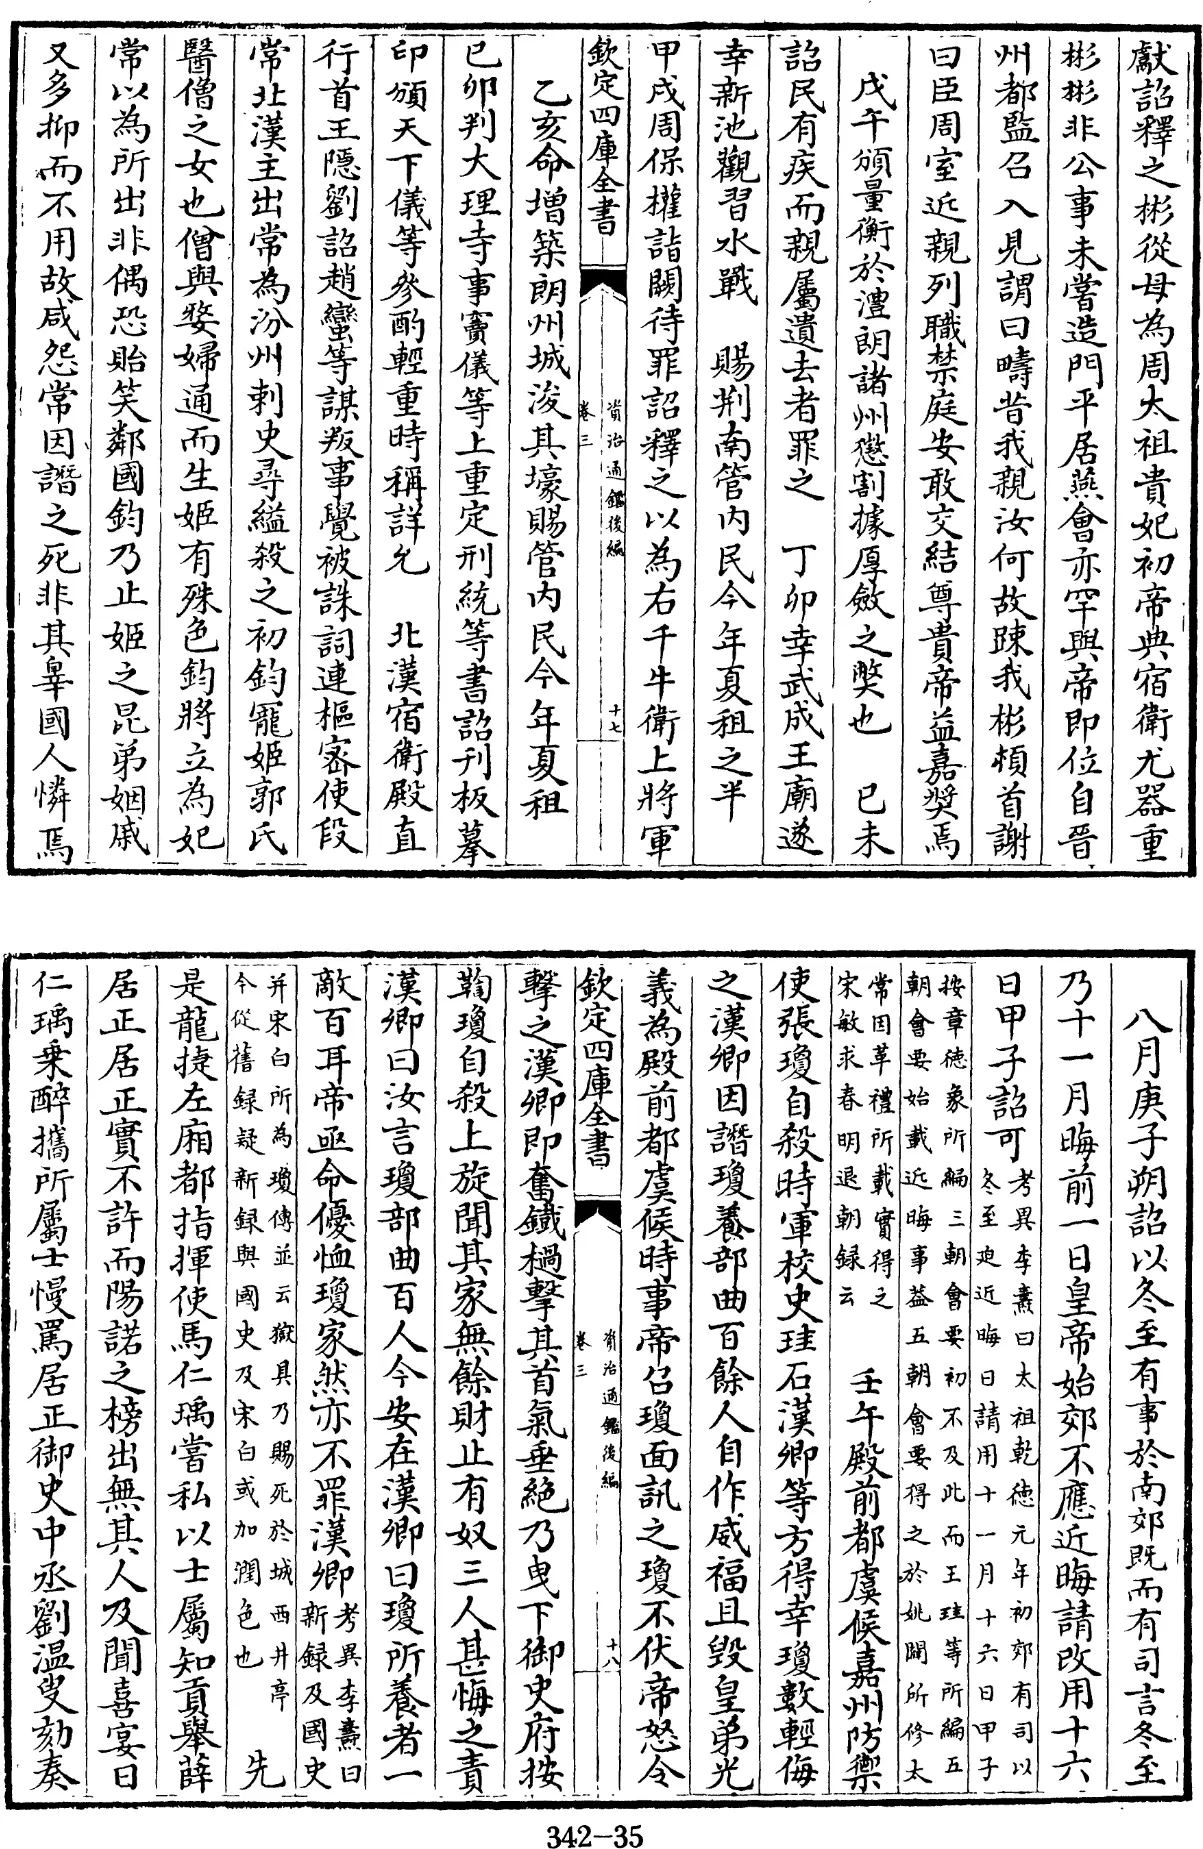 獻詔釋之彬從母為周太祖貴妃初帝典宿衛尤器重
彬彬非公事未嘗造門平居燕會亦罕與帝即位自晉
州都監召入見謂曰疇昔我親汝何故踈我彬頓首謝
曰臣周室近親列職禁庭安敢交結尊貴帝益嘉奬焉
戊午頒量衡於澧朗諸州懲割據厚斂之獘也　己未
詔民有疾而親屬遺去者罪之　丁卯幸武成王廟遂
幸新池觀習水戰　賜荆南管内民今年夏租之半
甲戌周保權詣闕待罪詔釋之以為右千牛衛上將軍
欽定四庫全書　資治通鑑後編　卷三　十七
乙亥命増築朗州城浚其壕賜管内民今年夏租
己卯判大理寺事竇儀等上重定刑統等書詔刋板摹
印頒天下儀等參酌輕重時稱詳允　北漢宿衛殿直
行首王隱劉詔趙鸞等謀叛事覺被誅詞連樞密使段
常北漢主出常為汾州刺史尋縊殺之初鈞寵姬郭氏
醫僧之女也僧與嫠婦通而生姬有殊色鈞將立為妃
常以為所出非偶恐貽笑鄰國鈞乃止姬之昆弟姻戚
又多抑而不用故咸怨常因譖之死非其辠國人憐焉
八月庚子朔詔以冬至有事於南郊既而有司言冬至
乃十一月晦前一日皇帝始郊不應近晦請改用十六
日甲子詔可考異李燾曰太祖乾徳元年初郊有司以
冬至廹近晦日請用十一月十六日甲子
按章徳象所編三朝會要初不及此而王珪等所編五
朝會要始載近晦事葢五朝會要得之於姚闢所修太
常因革禮所載實得之
宋敏求春明退朝録云　壬午殿前都虞候嘉州防禦
使張瓊自殺時軍校史珪石漢卿等方得幸瓊數輕侮
之漢卿因譖瓊養部曲百餘人自作威福且毀皇弟光
義為殿前都虞候時事帝召瓊面訊之瓊不伏帝怒令
欽定四庫全書　資治通鑑後編　卷三　十八
擊之漢卿即奮鐵檛擊其首氣垂絶乃曳下御史府按
鞫瓊自殺上旋聞其家無餘財止有奴三人甚悔之責
漢卿曰汝言瓊部曲百人今安在漢卿曰瓊所養者一
敵百耳帝亟命優恤瓊家然亦不罪漢卿考異李燾曰
新録及國史
并宋白所為瓊傳並云獄具乃賜死於城西井亭
今從舊録疑新録與國史及宋白或加潤色也　先
是龍捷左廂都指揮使馬仁瑀嘗私以士屬知貢舉薛
居正居正實不許而陽諾之榜出無其人及聞喜宴日
仁瑀乗醉攜所屬士慢罵居正御史中丞劉温叟劾奏
342-35